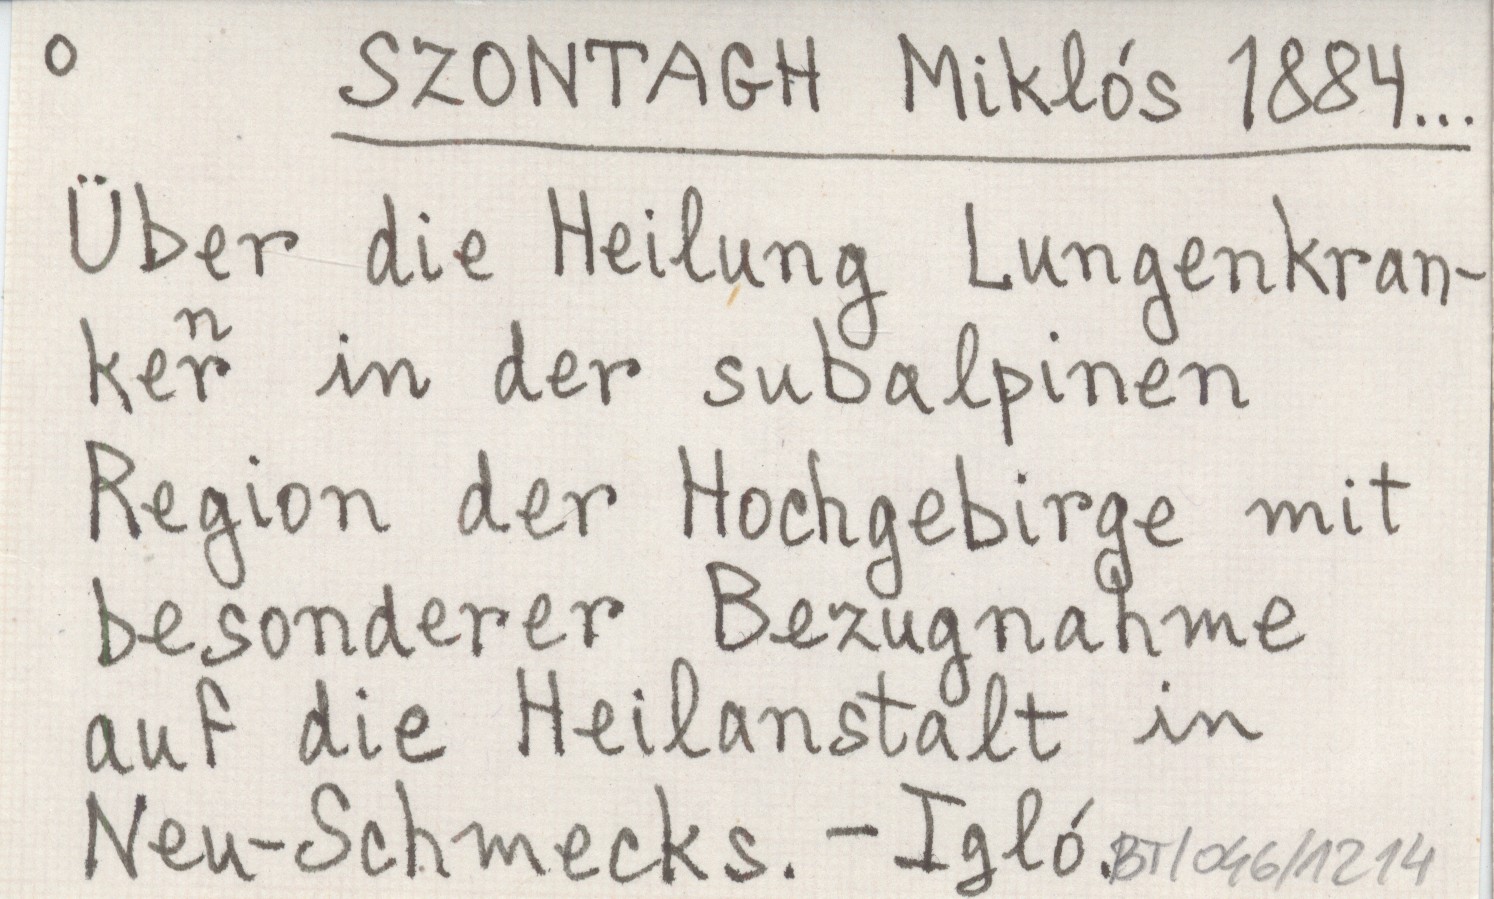 o SZONTAGH Miklós 1884...
Über die Heilung Lungenkran-
n
ker in der subalpinen
Region der Hochgebirge mit
besonderer Bezugnahme
auf die Heilanstalt in
Neu-Schmecks. - Igló. BT/046/1214